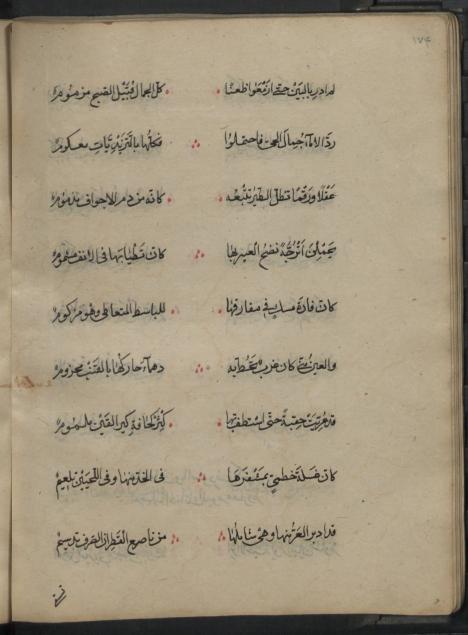 ١٧٤
لم ادر بالبين حتى ازمعوا ظعنا كل الجمال قبيل الصبح مزموم
ردّ الاماء جمال الحى فاحتملوا فكلها بالتزيديات معكوم
عقلا ورقما تظل الطير تتبعه كانه من دم الاجواف مدموم
يحملن اترجّة نضخ العبير بها كان تطيابها فى الانف مشموم
كان فارة مسك فى مفارقها للباسط المتعاطى وهو مزكوم
والعين منى كان غرب تحط به دهماء حاركها بالقتب محزوم
قد عريت حقبة حتى استطف لها كتر كحافة كير القين ملموم
كان غسلة خطمى بمشفرها فى الخد منها وفى اللحيين تلغيم
قد ادبر العر عنها وهى شاملها من ناصع القطران الصرف تدسيم